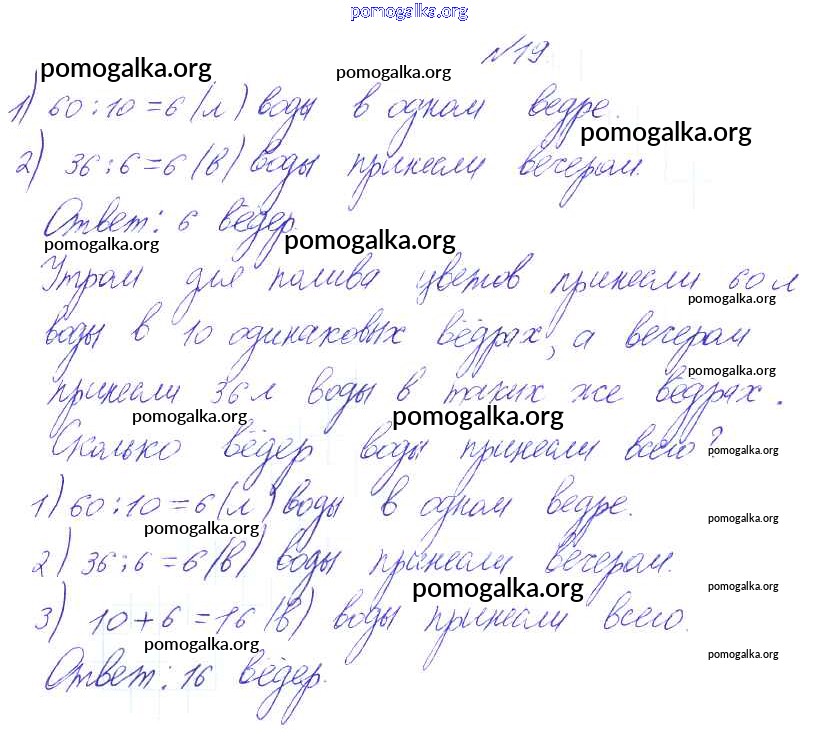 pomogalka.org
№19.
pomogalka.org pomogalka.org
1) 60:10=6(л) воды в одном ведре.
pomogalka.org
2) 36:6=6(в) воды принесли вечером.
Ответ: 6 вёдер.
pomogalka.org pomogalka.org
Утром для полива цветов принесли 60 л
pomogalka.org
воды в 10 одинаковых вёдрах, а вечером
pomogalka.org
принесли 36 л воды в таких же вёдрах.
pomogalka.org pomogalka.org
Сколько вёдер воды принесли всего?
pomogalka.org
1) 60:10=6(л) воды в одном ведре.
pomogalka.org pomogalka.org
2) 36:6=6(в) воды принесли вечером.
pomogalka.org pomogalka.org
3) 10+6=16(в) воды принесли всего.
pomogalka.org pomogalka.org
Ответ: 16 вёдер.